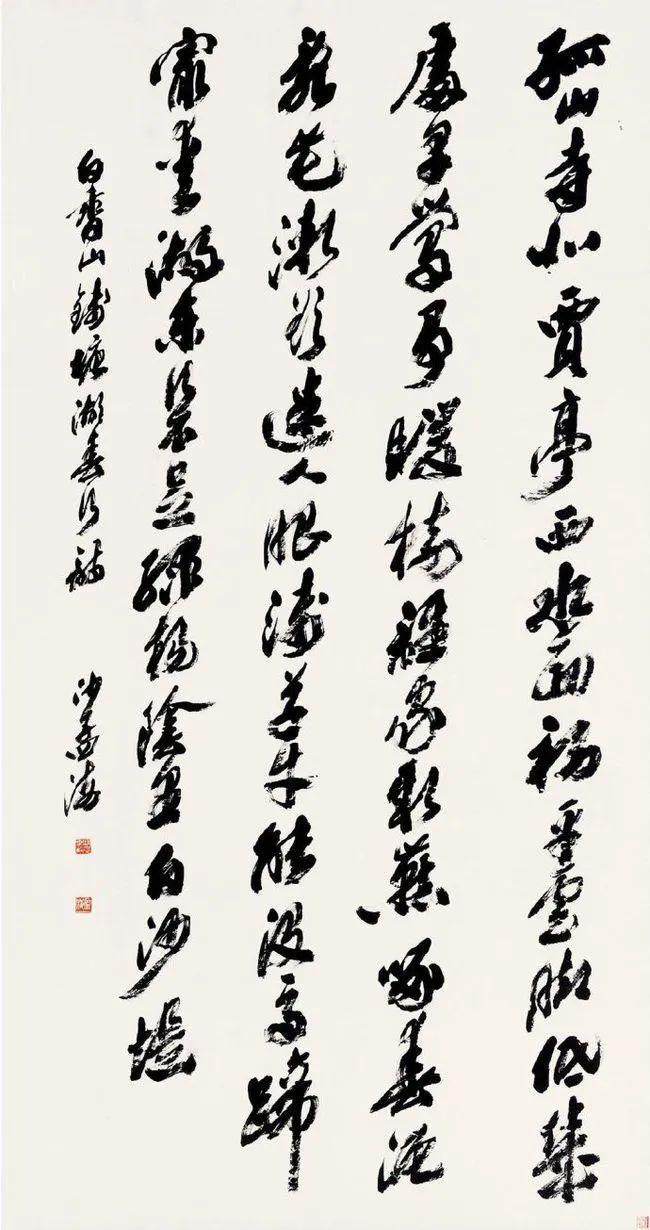 孤山寺北賈亭西水面初平雲脚低幾
處早鶯爭暖樹誰家新燕啄春泥
亂花漸欲迷人眼淺草才能没馬蹄
最愛湖東行不足綠楊陰里白沙堤
白香山錢塘湖春行詩
沙孟海